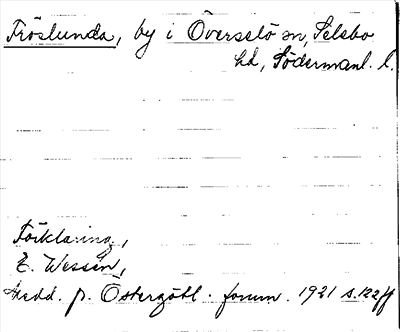 Fröslunda, by i Överselö sn, Selebo
hd, Södermanl. l.
Förklaring,
E. Wessén,
Medd. fr. Östergötl. fornm. 1921 s. 122 ff